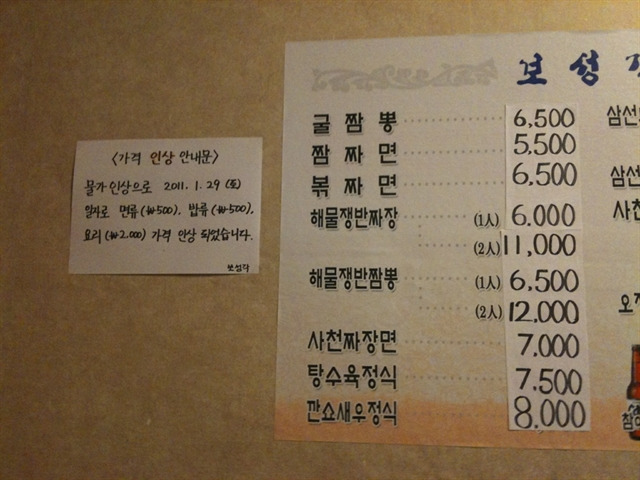 <가격 인상 안내문>
물가 인상으로 2011. 1. 29 (토)
일자로 면류(₩500), 밥류(₩500),
요리(₩2,000) 가격 인상 되었습니다.
보성각
보성
굴짬뽕 6,500
짬짜면 5,500
볶짜면 6,500
해물쟁반짜장 (1人) 6,000
(2人) 11,000
해물쟁반짬뽕 (1人) 6,500
(2人) 12,000
사천짜장면 7,000
탕수육정식 7,500
깐쇼새우정식 8,000
삼선
삼선
사천
오징
참